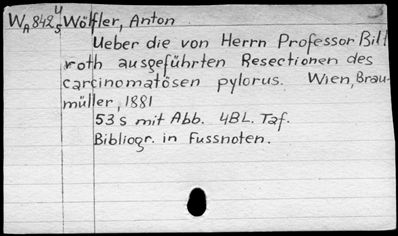 WA 842 U5 Wölfler, Anton
Ueber die von Herrn Professor Bill
roth ausgeführten Resectionen des
carcinomatösen pylorus. Wien, Brau-
müller, 1881
53 s mit Abb. 4BL. Taf.
Bibliogr. in Fussnoten.